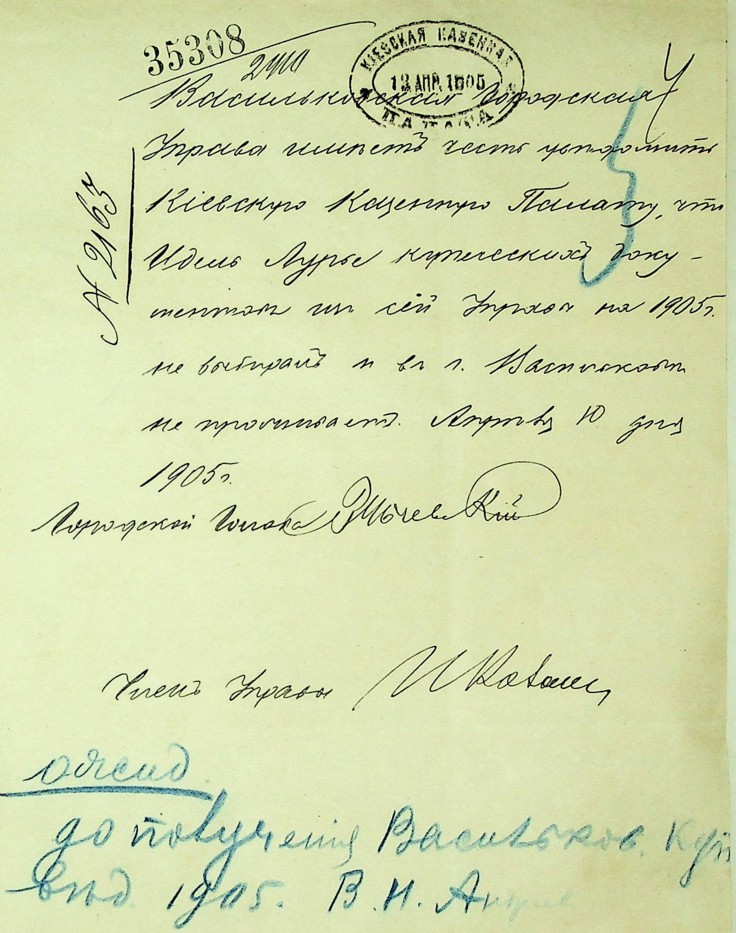 35308
2410
КІЕВСКАЯ КАЗЕННАЯ
13 АПР. 1905
ПАЛАТА
Васильковская Городская
Управа имѣетъ честь увѣдомить
Кіевскую Казенную Палату, что
№ 2165
Идель Лурье купеческихъ доку-
ментовъ изъ сей Управы на 1905г.
не выбиралъ и въ г. Васильковѣ
не проживаетъ. Апрѣля 10 дня
1905г.
Городской Голова
Членъ Управы
до полученія Васильков. Куп
вѣд. 1905. В. Н.